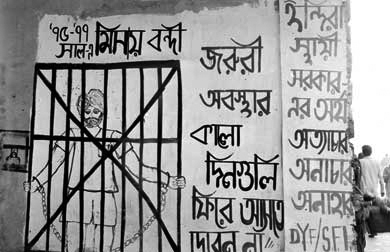 '৭৫-৭৭
সালে মিসায় বন্দী
জরুরী
অবস্থার
কালো
দিনগুলি
ফিরে আসতে
দেবেন না
ইন্দিরা
স্থায়ী
সরকার
এর অর্থ
অত্যাচার
অনাচার
অনাহার
DYF/SFI